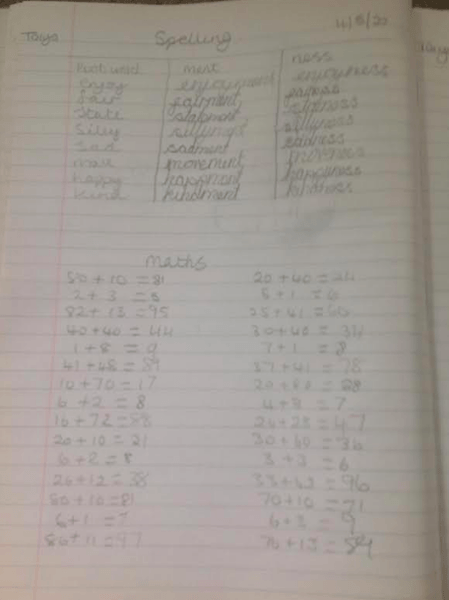 Taya Spelling 11/5/20
Root word ment ness
enjoy enjoyment enjoyness
fair fairment fairness
State statement stateness
Silly sillyment sillyness
Sad sadment sadness
movement
happy happment happiness
kind kindment kindness
Maths
80 + 10 = 81 20 + 40 = 24
2 + 3 = 5 5 + 1 = 6
82 + 13 = 95 25 + 41 = 66
40 + 40 = 44 30 + 40 = 34
1 + 8 = 9 7 + 1 = 8
41 + 48 = 89 37 + 41 = 78
10 + 70 = 17 20 + 80 = 28
6 + 2 = 8 4 + 3 = 7
16 + 72 = 88 24 + 23 = 47
20 + 10 = 21 30 + 60 = 36
6 + 2 = 8 3 + 3 = 6
26 + 12 = 38 33 + 63 = 96
80 + 10 = 81 70 + 10 = 71
6 + 1 = 7 6 + 3 = 9
86 + 11 = 97 76 + 13 = 89